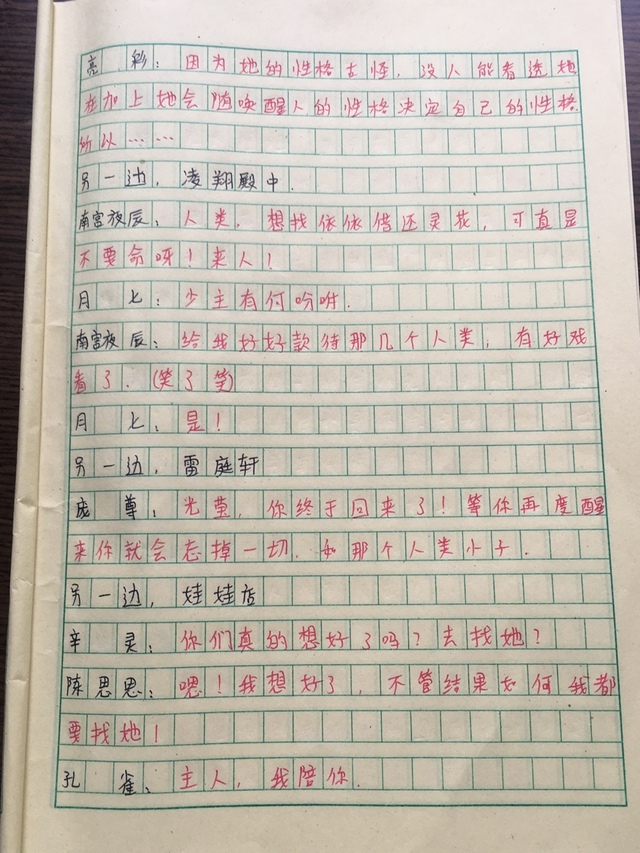 亮彩：因为她的性格古怪，没人能看透她
在加上她会随唤醒人的性格决定自己的性格
所以……
另一边，凌翔殿中．
南宫夜辰：人类，想找依依借还灵花，可真是
不要命呀！来人！
月七：少主有何吩咐．
南宫夜辰：给我好好款待那几个人类，有好戏
看了．（笑了笑）
月七：是！
另一边，雷庭轩
庞尊：光莹，你终于回来了！等你再度醒
来你就会忘掉一切．和那个人类小子．
另一边，娃娃店
辛灵：你们真的想好了吗？去找她？
陈思思：嗯！我想好了，不管结果如何我都
要找她！
孔雀：主人，我陪你．